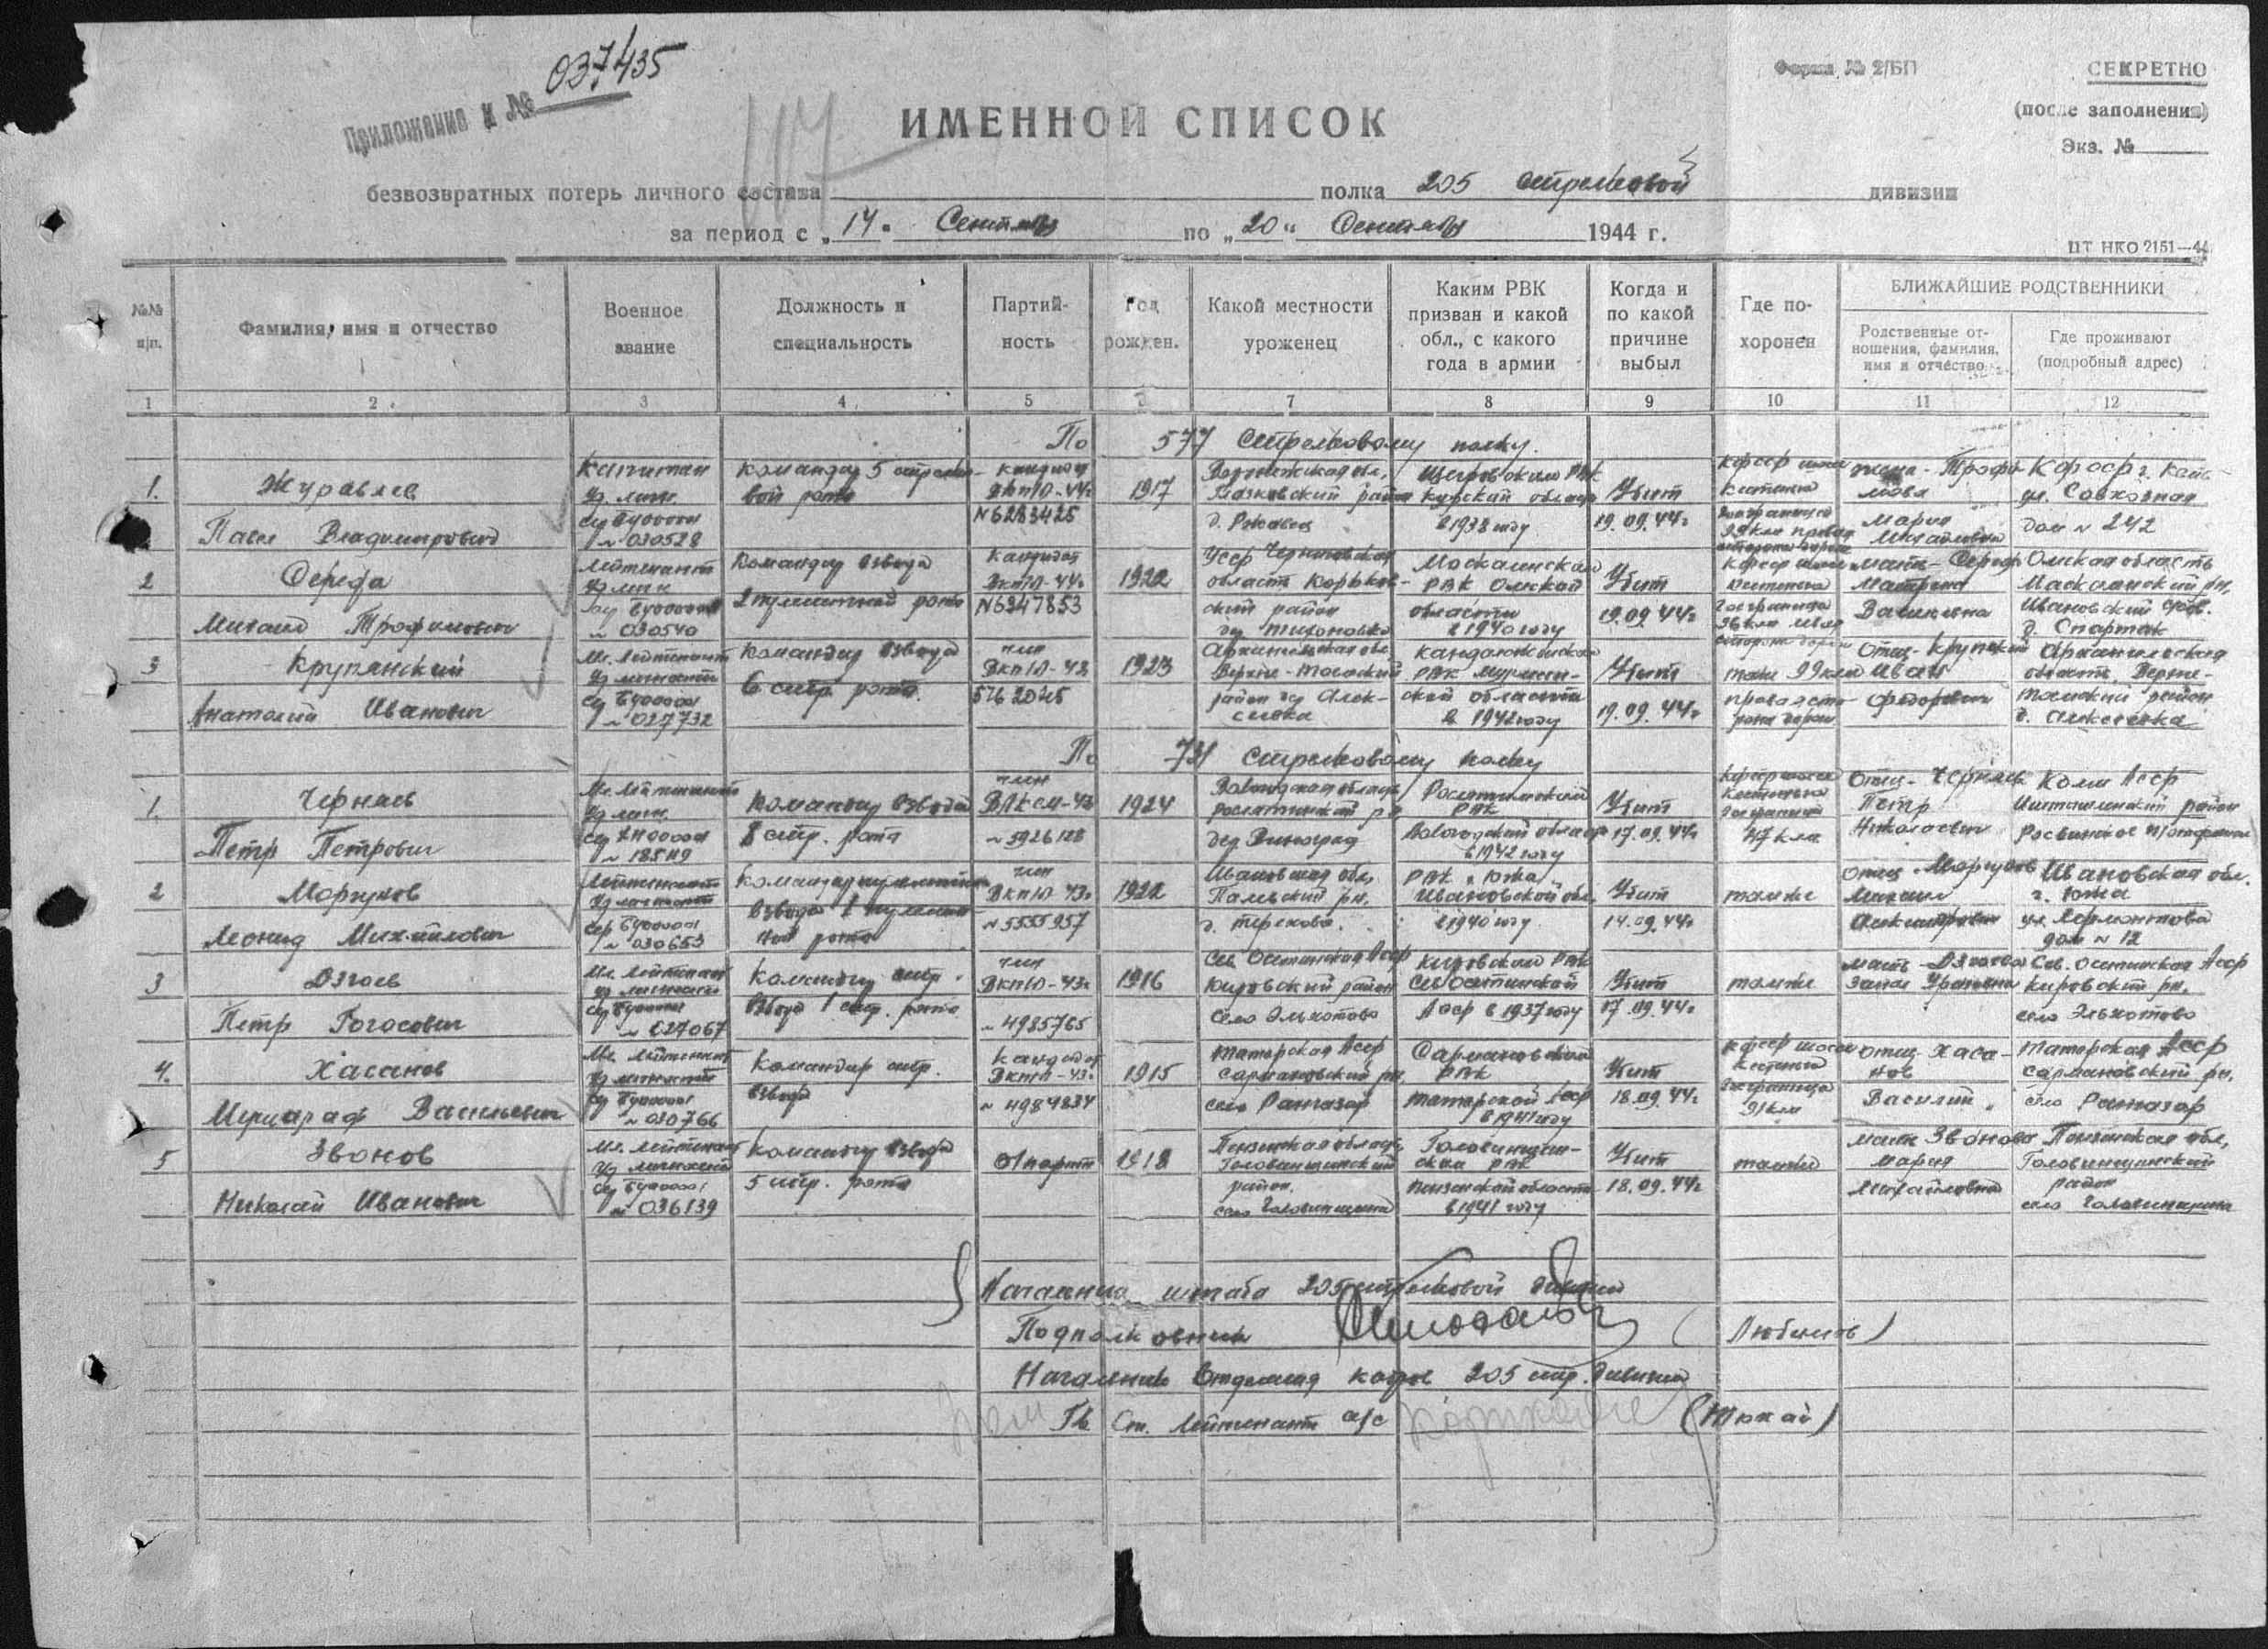 Приложение к № 037435
Форма № 2/БП
СЕКРЕТНО
(после заполнения)
Экз. №
ИМЕННОЙ СПИСОК
безвозвратных потерь личного состава полка 205 стрелковой дивизии
за период с „14" Сентября по „20" Сентября 1944 г.
ЦТ НКО 2151—44
№№ п/п.
Фамилия, имя и отчество
Военное звание
Должность и специальность
Партий-
ность
Год рожден.
Какой местности уроженец
Каким РВК
призван и какой
обл., с какого
года в армии
Когда и
по какой
причине
выбыл
Где по-
хоронен
БЛИЖАЙШИЕ РОДСТВЕННИКИ
Родственные от-
ношения, фамилия,
имя и отчество
Где проживают
(подробный адрес)
1 2 3 4 5 6 7 8 9 10 11 12
По 577 Стрелковому полку.
1.
Журавлев
Павел Владимирович
Капитан
Уд. личн.
№ 030528
Командир 5 стрелко-
вой роты
Кандидат
ВКП/б-44г
№ 6283425
1917
Воронежская обл.
район
Щигровским РВК
Курской области
в 1938 году
Убит
19.09.44г
Кфсср шоссе
Кестеньга
Госграница
жена - Трофи-
мова
Мария
Михайловна
Кфсср г. Кемь
ул. Совхозная
дом № 242
2
Середа
Михаил Трофимович
Лейтенант
Уд личн
№ 030540
Командир взвода
2 пулеметной роты
Кандидат
ВКП/б-44г
№ 6347853
1922
Усср Черниговская
область Корюков-
ский район
дер Тихоновка
Москаленским
РВК Омской
области
в 1940 году
Убит
19.09.44г
мать - Середа
Матрена
Васильевна
Омская область
Москаленский рн,
Ивановский
д. Спартак
3
Крупянский
Анатолий Иванович
Мл. Лейтенант
Уд личности
№ 027732
Командир взвода
6 стр. роты
чл
ВКП/б-43
5762045
1923
Архангельская обл
Верхне-Тоемский
район
Кандалакшским
РВК Мурман-
ской области
в 1942 году
Убит
19.09.44г
там же 39 клм
Отец - Крупянский
Иван
Федорович
Архангельская
область, Верхне-
Тоемский район
По 731 Стрелковому полку
1.
Черняев
Петр Петрович
Мл. Лейтенант
Уд личн.
№ 185119
Командир взвода
8 стр. роты
член
ВЛКСМ-43
№ 5926128
1924
Вологодская область
Рослятинский р-н
дер Виноград
Рослятинский
РВК
Вологодской области
в 1942 году
Убит
17.09.44г
Кфсср шоссе
Кестеньга
Госграница
47 клм
Отец - Черняев
Петр
Николаевич
Коми Асср
район
2
Моргунов
Леонид Михайлович
Лейтенант
Уд личности
№ 030653
Командир пулеметного
взвода 1 пулемет-
ной роты
член
ВКП/б-43г
№ 5555957
1922
Ивановская обл,
Палехский рн,
д. Терехово.
РВК г. Южа
Ивановской обл.
в 1940 году
Убит
14.09.44г
там же
Отец Моргунов
Михаил
Александрович
Ивановская обл.
г. Южа
ул. Лермонтова
дом № 12
3
Дзгоев
Петр Гогосович
Мл. Лейтенант
Уд личности
№ 027067
Командир стр.
взвода 1 стр. роты
член
ВКП/б-43г
№ 4985765
1916
Сев. Осетинская Асср
Кировский район
село Эльхотово
Кировским РВК
Сев Осетинской
Асср в 1937 году
Убит
17.09.44г
там же
мать - Дзгоева
Сев. Осетинская Асср
Кировский рн,
село Эльхотово
4.
Хасанов
Мушараф Васильевич
Мл. Лейтенант
Уд личности
№ 030766
Командир стр.
взвода
Кандидат
ВКП/б-43г
№ 4984834
1915
Татарская Асср
Сармановский рн,
село Рангазар
Сармановским
РВК
Татарской Асср
в 1941 году
Убит
18.09.44г
Кфсср шоссе
Кестеньга
Госграница
31 клм
Отец - Хаса-
нов
Василий
Татарская Асср
Сармановский рн,
село Рангазар
5
Звонов
Николай Иванович
Мл. Лейтенант
Уд личности
№ 036139
Командир взвода
5 стр. роты
б/парт
1918
Пензенская область
Головинщинский
район.
село Головинщина
Головинщин-
ским РВК
Пензенской области
в 1941 году
Убит
18.09.44г
там же
мать Звонова
Мария
Михайловна
Пензенская обл,
Головинщинский
район
село Головинщина
Начальник штаба 205 стрелковой дивизии
Подполковник (Любимов)
Начальник Отделения кадров 205 стр. дивизии
Гв Ст. Лейтенант а/с (Токай)